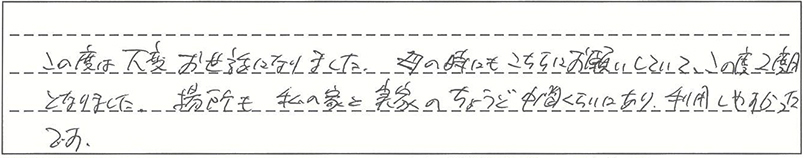 この度は大変お世話になりました。母の時にもこちらにお願いしていて、この度2度目
となりました。場所も私の家と実家のちょうど中間くらいにあり、利用しやすかった
です。